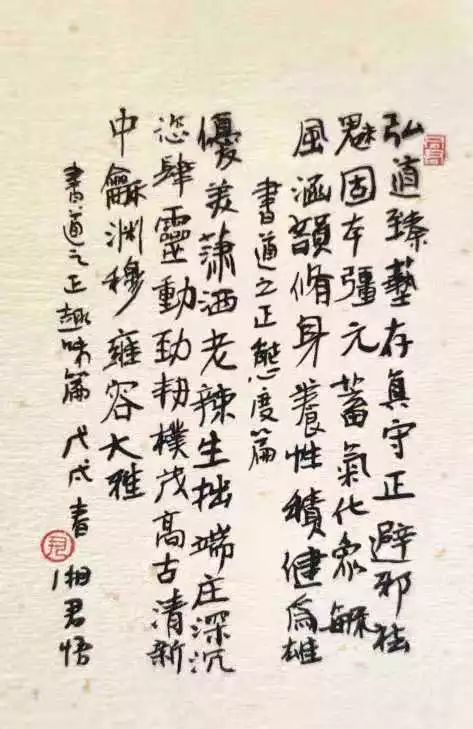 弘道臻艺存真守正避邪祛
魅固本彊元蓄气化象稣
风涵韻脩身養性積健為雄
書道之正態度篇
優美萧洒老辣生拙端庄深沉
恣肆靈動劲韧樸茂高古清新
中龢渊穆雍容大雅
書道之正趣味篇 戊戌春 湘君悟